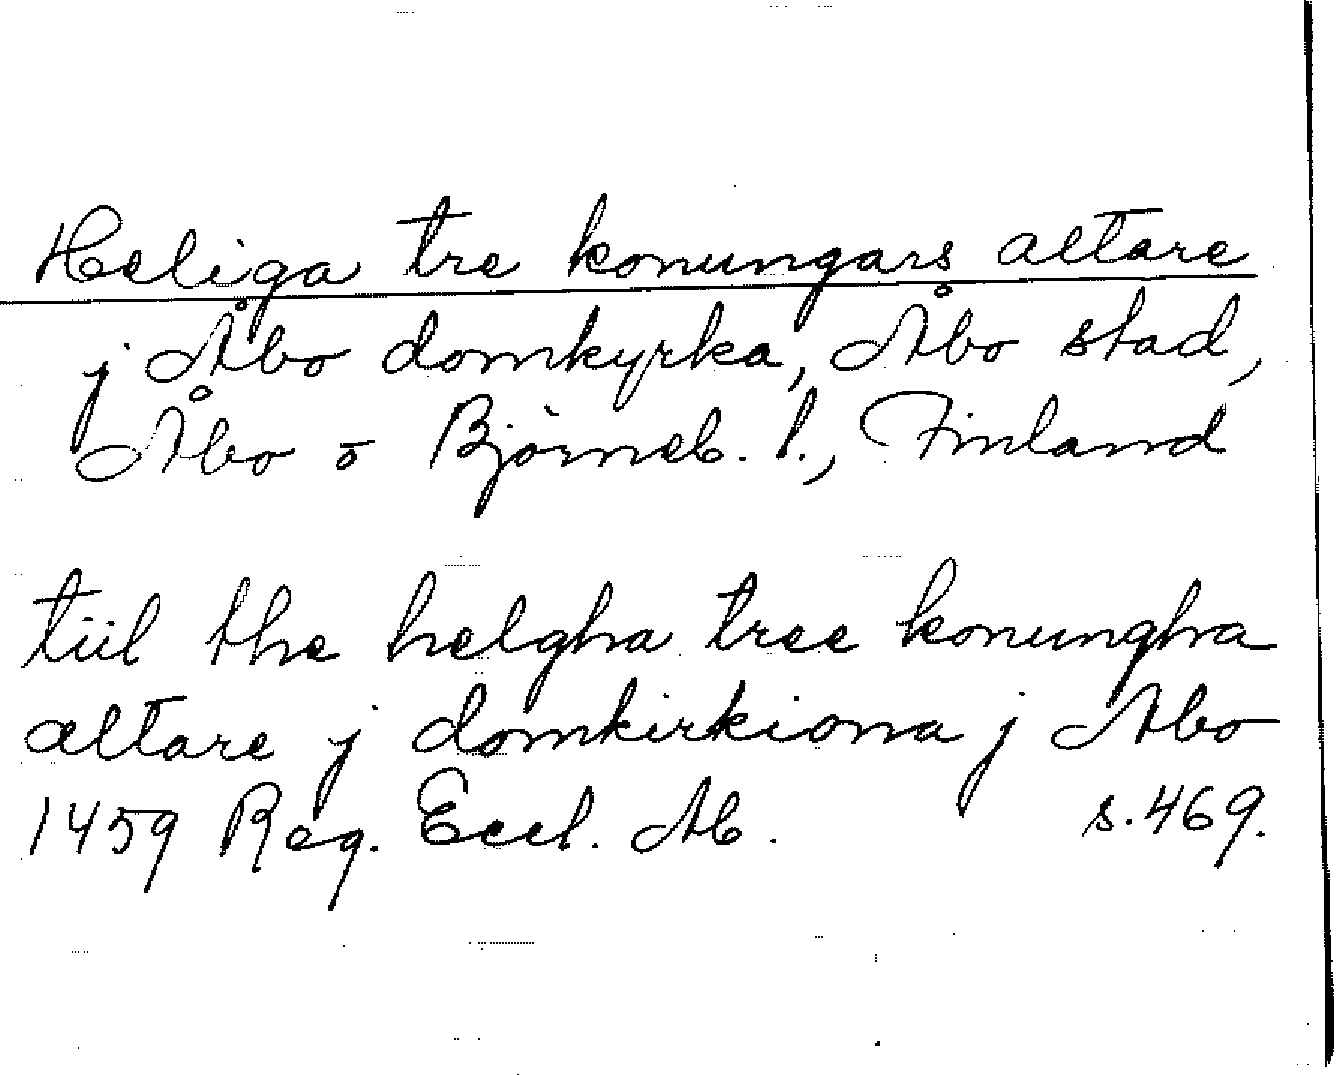 Heliga tre konungars altare
j Åbo domkyrka, Åbo stad,
Åbo o Björneb. l., Finland
tiil the helgha tree konungha
altare j domkirkiona j Abo
1459 Reg. Eccl. Ab. s. 469.